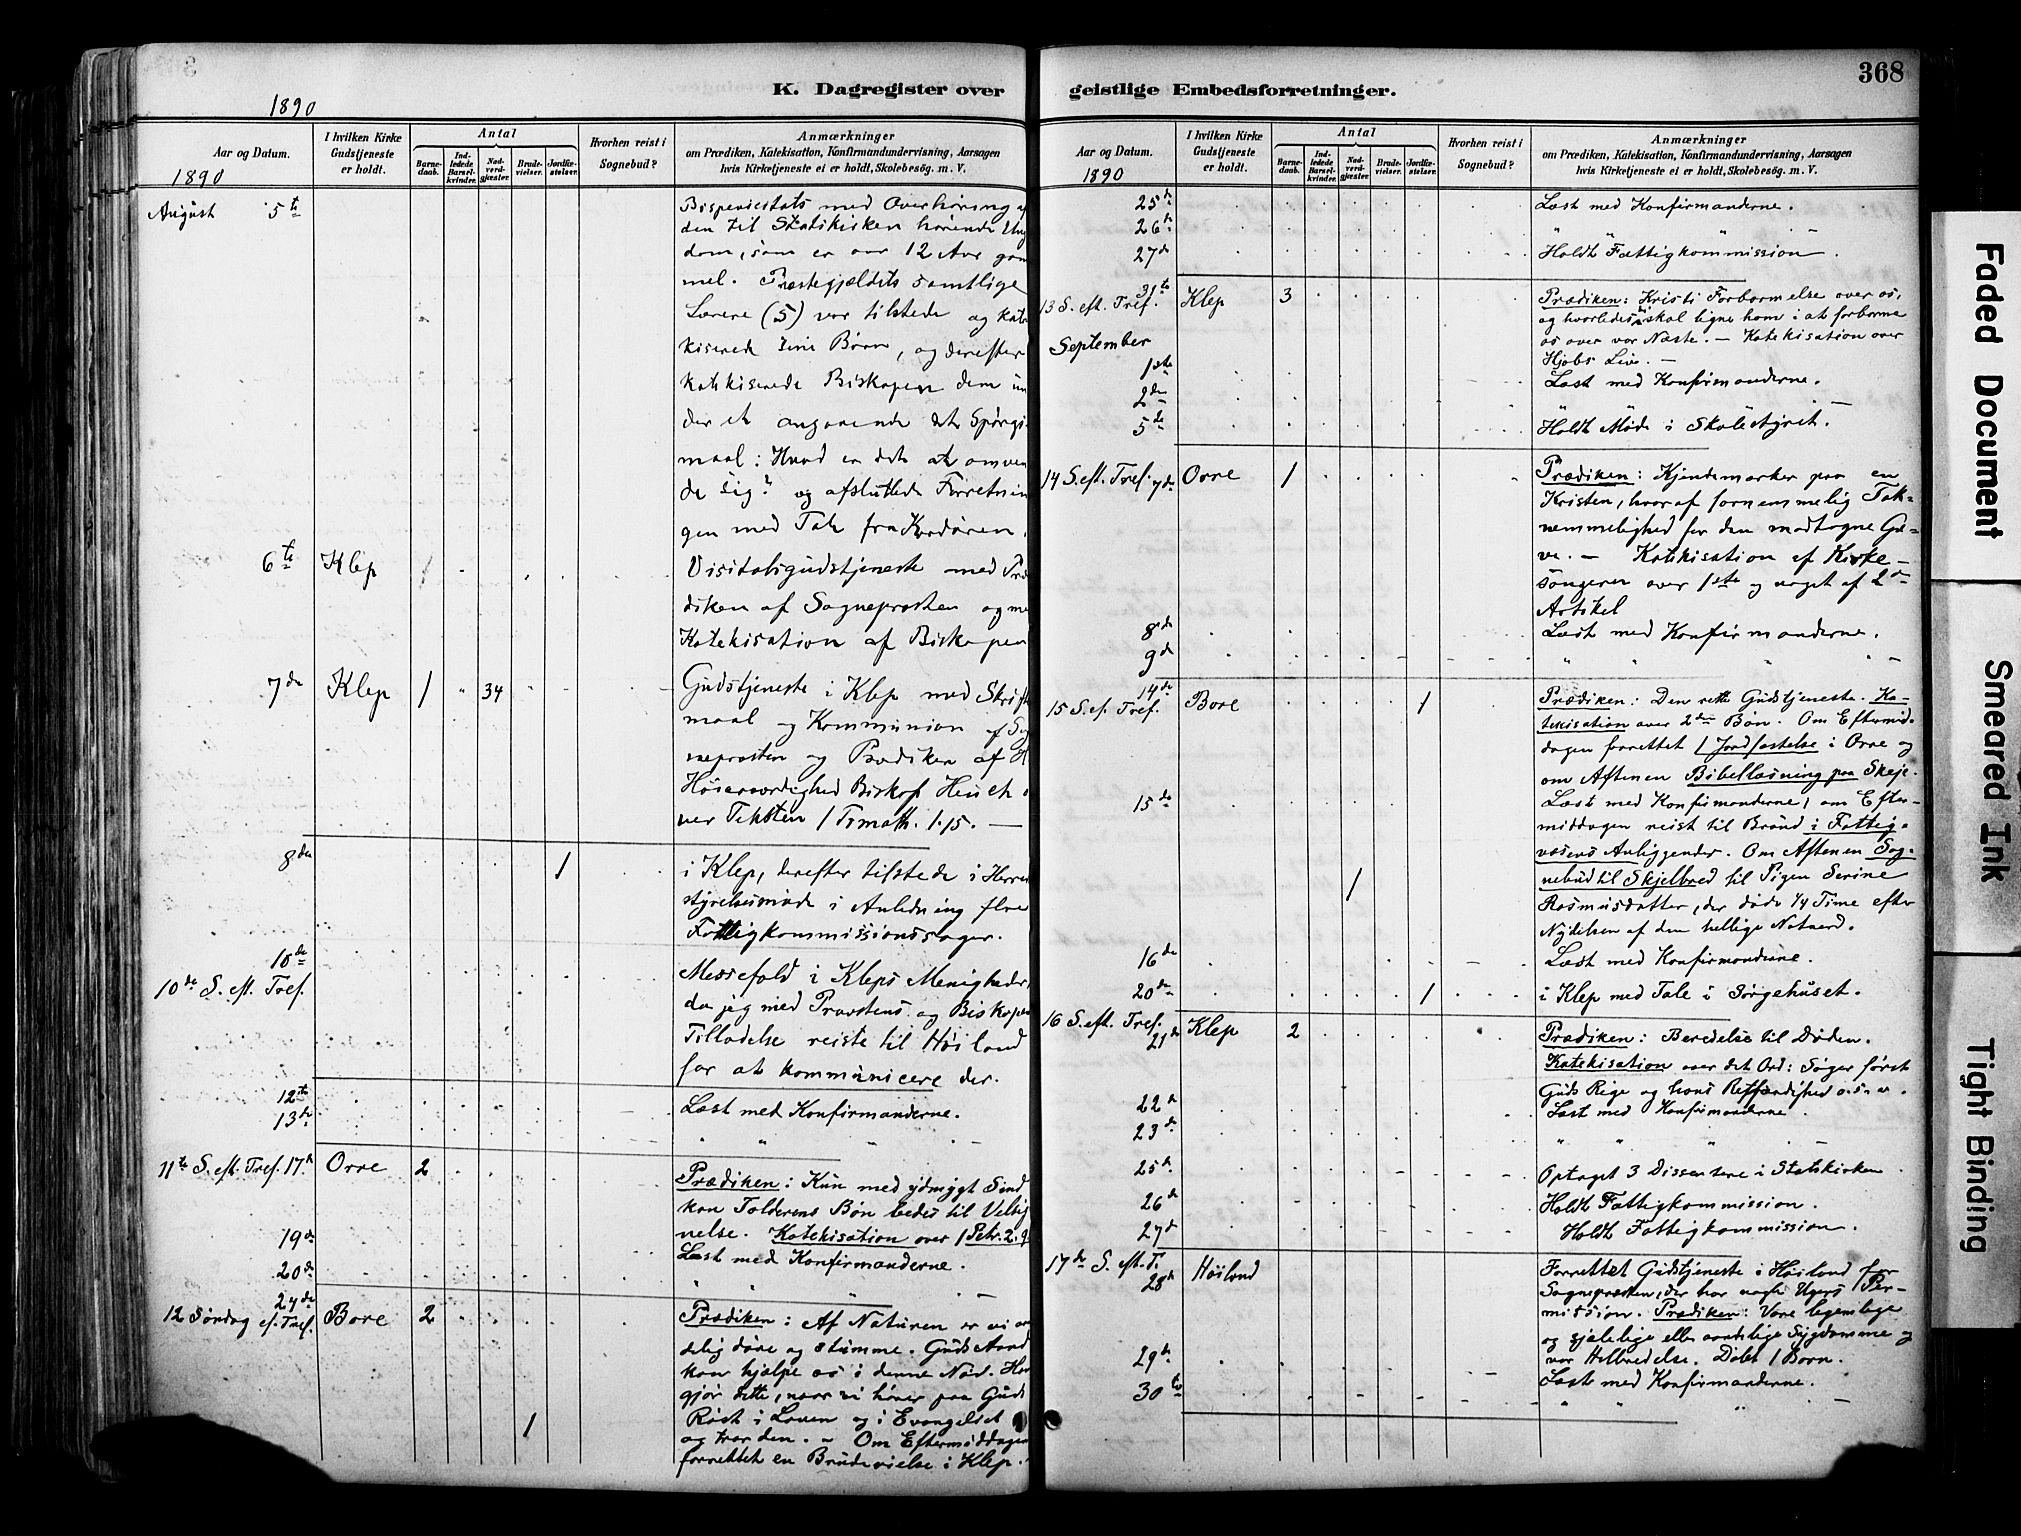 368
K. Dagregister over geistlige Embedsforretninger.
1890
Aar og Datum.
I hvilken Kirke Gudstjeneste er holdt.
Antal
Barnedaab.
Indledede Barselkvinder.
Nadverdgjæster.
Brudevielser.
Jordfæstelser.
Hvorhen reist i Sognebud?
Anmærkninger
om Prædiken, Katekisation, Konfirmandundervisning, Aarsagen
hvis Kirketjeneste ei er holdt, Skolebesøg. m. V.
1890
August 5te Bispevisitats med Overhøring af
den til Statskirken hørende Ung
dom, som er over 12 Aar gam
mel. Præstegjældets samtlige
Lærere (5) var tilstede og kate
kiserede sine Børn, og derefter
katekiserede Biskopen dem un
der et angaaende det Spørgs
maal: Hvad er det at omven
de sig? og afsluttede Forretnin
gen med Tak fra Kordøren.
6te Klep 1 Visitatsgudstjeneste med Præ
diken af Sognepræsten og me
Katekisation af Biskopen
7de Klep 1 " 34 Gudstjeneste i Klep med Skrift
maal og Kommunion af Sog
nepræsten og Prædiken af H
Høiærværdighed Biskop Heuch o
ver Teksten 1 Timoth. 1.15. —
8de 1 i Klep, derefter tilstede i Herred
styrelsesmøde i Anledning flere
Fattigkommissionssager.
10de
10de S. eft. Tref. Messefald i Kleps Menigheder,
da jeg med Provstens og Biskopens
Tilladelse reiste til Høiland
for at kommunicere der.
12te Læst med Konfirmanderne.
13de " " " —
11te S. eft. Tref. 17de Orre 2 Prædiken: Kun med ydmygt Sind
kan Tolderens Bøn bedes til Velsig
nelse. Katekisation over 1 Petr. 2.9.
19de Læst med Konfirmanderne.
20de " " —
24de
12 Søndag ef. Tref. Bore 2 Prædiken: Af Naturen er vi aan
delig døve og stumme. Guds Aand
kan hjælpe os i denne Nød. Han
gjør dette, naar vi hører paa Guds
Røst i Loven og i Evangeliet
1 og tror den. — Om Eftermiddagen
forrettet en Brudevielse i Klep.
Aar og Datum.
I hvilken Kirke Gudstjeneste er holdt.
Antal
Barnedaab.
Indledede Barselkvinder.
Nadverdgjæster.
Brudevielser.
Jordfæstelser.
Hvorhen reist i Sognebud?
Anmærkninger
om Prædiken, Katekisation, Konfirmandundervisning, Aarsagen
hvis Kirketjeneste ei er holdt, Skolebesøg. m. V.
1890
25de Læst med Konfirmanderne.
26de " " —
27de Holdt Fattigkommission.
31te
13 S. eft. Tref. Klep 3 Prædiken: Kristi Forbarmelse over os,
og hvorledes vi skal ligne ham i at forbarme
os over vor Næste. — Katekisation over
September Hjobs Liv. —
1ste Læst med Konfirmanderne.
2de " " —
5te Holdt Møde i Skolestyret.
14 S. eft. Tref. 7de Orre 1 Prædiken: Kjendemærker paa en
Kristen, hvoraf fornemmelig Tak-
nemmelighed for den modtagne Ga-
ve. — Katekisation af Kirke-
sangeren over 1ste og noget af 2den
Artikel
8de Læst med Konfirmanderne.
9de " " " —
14de
15 S. ef. Tref. Bore 1 Prædiken: Den rette Gudstjeneste. Ka-
tekisation over 2den Bøn. Om Eftermid-
dagen forrettet 1 Jordfæstelse i Orre og
om Aftenen Bibellæsning paa Skeje.
15de Læst med Konfirmanderne, om Efter-
middagen reist til Brønd i Fattig-
væsens Anliggender. Om Aftenen Sog-
1 nebud til Skjelbred til Pigen Serine
Rasmusdatter, der døde 1/4 Time efter
Nydelsen af den hellige Natverd.
16de Læst med Konfirmanderne.
20de 1 i Klep med Tale i Sørgehuset.
16 S. eft. Tref. 21de Klep 2 Prædiken: Beredelse til Døden.
Katekisation over det Ord: Søger først
Guds Rige og hans Retfærdighed o.s.v.
22de Læst med Konfirmanderne.
23de " " " —
25de Optaget 3 Dissentere i Statskirken
26de Holdt Fattigkommission.
27de Holdt Fattigkommission.
17de S. eft. T. 28de Høiland Forrettet Gudstjeneste i Høiland for
Sognepræsten, der har nogle Ugers Per-
mission. Prædiken: Vore legemlige
og sjælelige eller aandelige Sygdomme og
29de vor Helbredelse. Døbt 1 Barn.
30te Læst med Konfirmanderne.
" " " —
Faded Document
Smeared Ink
Tight Binding